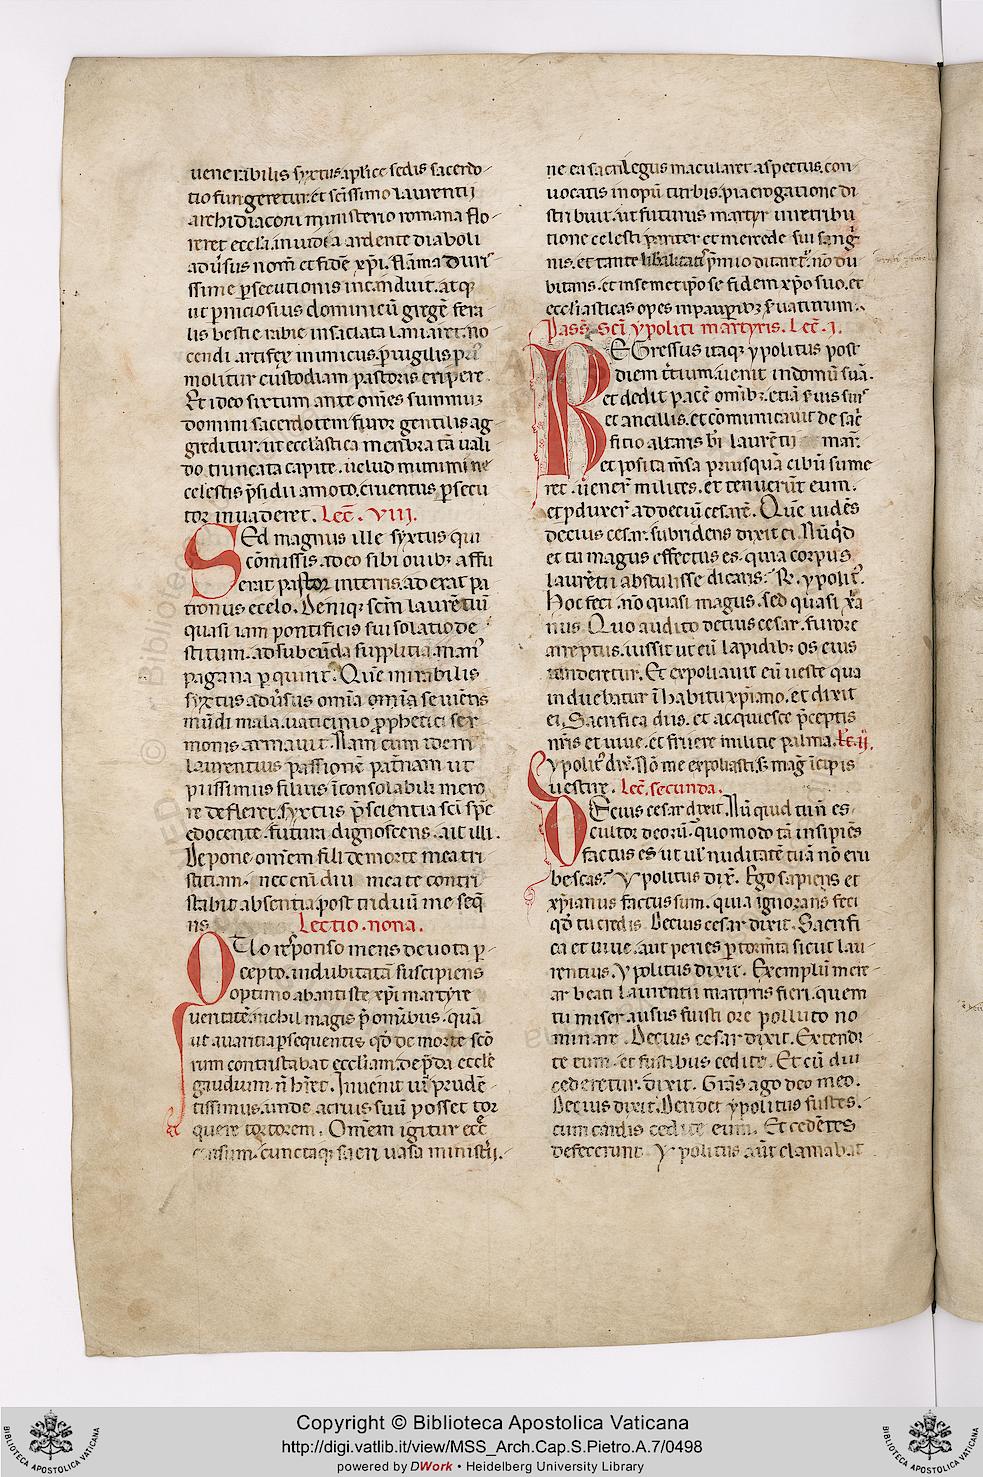 uenerabilis syxtus aplice sedis sacerdo-
tio fungeretur. et scissimo laurentii
archidiaconi ministerio romana flo-
reret eccla. inuidia ardente diaboli
aduersus nom̄ et fidē xp̄i. flāma duri
ssime p̄secutionis incanduit. atq;
ut p̄niciosius dominicū gregē fera-
lis bestie rabie insaciata laniaret. no
cendi artifex inimicus. p̄uigilis p̄ri
molitur custodiam pastoris eripere.
Et ideo sixtum ante om̄es summuꝫ
domini sacerdotem furor gentilis ag-
greditur. ut ecclastica menbra tā uali
do truncata capite. uelud munimine
celestis p̄sidii amoto. cruentus p̄secu
tor inuaderet. Lec̄. VIII.
SEd magnus ille syxtus qui
cōmissis. adeo sibi ouibꝫ affu
erat pastor in terris. aderat pa
tronus ecelo. Deniqꝫ scm̄ laurētiū
quasi iam pontificis sui solatio de
stitum. ad subeūda supplitia man'
pagana p̄quirit. Quē mirabilis
syxtus aduersus omīa omīa seuiētis
mūdi mala. uaticinio p̄phetici ser
monis armauit. Nam cum idem
laurentius passionē pat̄nam ut
piissimus filius īconsolabili mero
re defleret. syxtus p̄scientia sci sp̄c
edocente. futura dignoscens. ait illi.
Depone om̄em fili de morte mea tri
stitiam. nec enī diu mea te contri
stabit absentia. post triduū me seq̄
ris. Lectio. nona.
Quo responso mens deuota p̄
cepto. indubitatā suscipiens
optimo abantiste xp̄i martyre
ueritatē. nichil magis p̄ omībus. quā
ut auaritia p̄sequentis qd̄ de morte scō
rum contristabat eccliam. de p̄da eccle
gaudium n̄ hr̄et. Inuenit uir prudē-
tissimus. unde acrius suū posset tor
quere tortorem. Om̄em igitur ecc
censum. cunctaqꝫ sacri uasa ministīi.
ne ea sacrilegus macularet aspectus. con-
uocatis inopū turbis. pia erogatione di
stribuit. ut futurus martyr in retribu
tione celesti pariter et mercede sui sang̈
nis. et tante libalitatis p̄mio ditaret̄. nō du
bitans. et in semet ipso se fidem xp̄o suo. et
ecclīasticas opes in paup̄ibꝫ s̄uatirum.
Pass̄. scī ypoliti martyris. Lec̄. I.
REGressus itaqꝫ ypolitus post
diem t̄tium. uenit in domū suā.
et dedit pacē omībꝫ. etiā s̄uis suis
et ancillis. et cōmunicauit de sac̄
ficio altaris bi laurētii mar̄.
et posita m̄sa priusquā cibū sume
ret. uener̄ milites. et tenuer̄t eum.
et p̄duxer̄ ad deciū cesarē. Quē uidēs
decius cesar. subridens dixit ei. Nū qd̄
et tu magus effectus es. quia corpus
laurētii abstulisse dicaris. R̄. ypolit'.
Hoc feci. nō quasi magus. sed quasi xr̄a
nus. Quo audito decius cesar. furore
arreptus. iussit ut eū lapidibꝫ os eius
tunderetur. Et expoliauit eū ueste qua
induebatur ī habitu xp̄iano. et dixit
ei. Sacrifica diis. et acquiesce p̄ceptis
nr̄is et uiue. et fruere militie palma. Lc̄. ij.
Ypolit' dix̄. Nō me expoliasti. s; mag̈ īcipis
uestire. Lec̄. secunda.
DEcius cesar dixit. Nū quid tu n̄ es-
cultor deorū. quomodo tā insipiēs
factus es. ut ul' nuditatē tuā nō eru
bescas. Ypolitus dix̄. Ego sapiens et
xp̄ianus factus sum. quia ignorans feci
qd̄ tu credis. Decius cesar dixit. Sacrifi
ca et uiue. aut peries p̄ torm̄ta sicut lau-
rentius. Ypolitus dixit. Exemplū mere-
ar beati laurentii martyris fieri. quem
tu miser ausus fuisti ore polluto no
minare. Decius cesar dixit. Extendi
te eum. et fustibus cedite. Et cū diu
cederetur. dixit. Gr̄as ago deo meo.
Decius dixit. Deridet ypolitus fustes.
cum cardis cedite eum. Et cedētes
defecerunt. Ypolitus aūt clamabat
Copyright © Biblioteca Apostolica Vaticana
http://digi.vatlib.it/view/MSS_Arch.Cap.S.Pietro.A.7/0498
powered by DWork • Heidelberg University Library
BIBLIOTECA APOSTOLICA VATICANA
BIBLIOTECA APOSTOLICA VATICANA